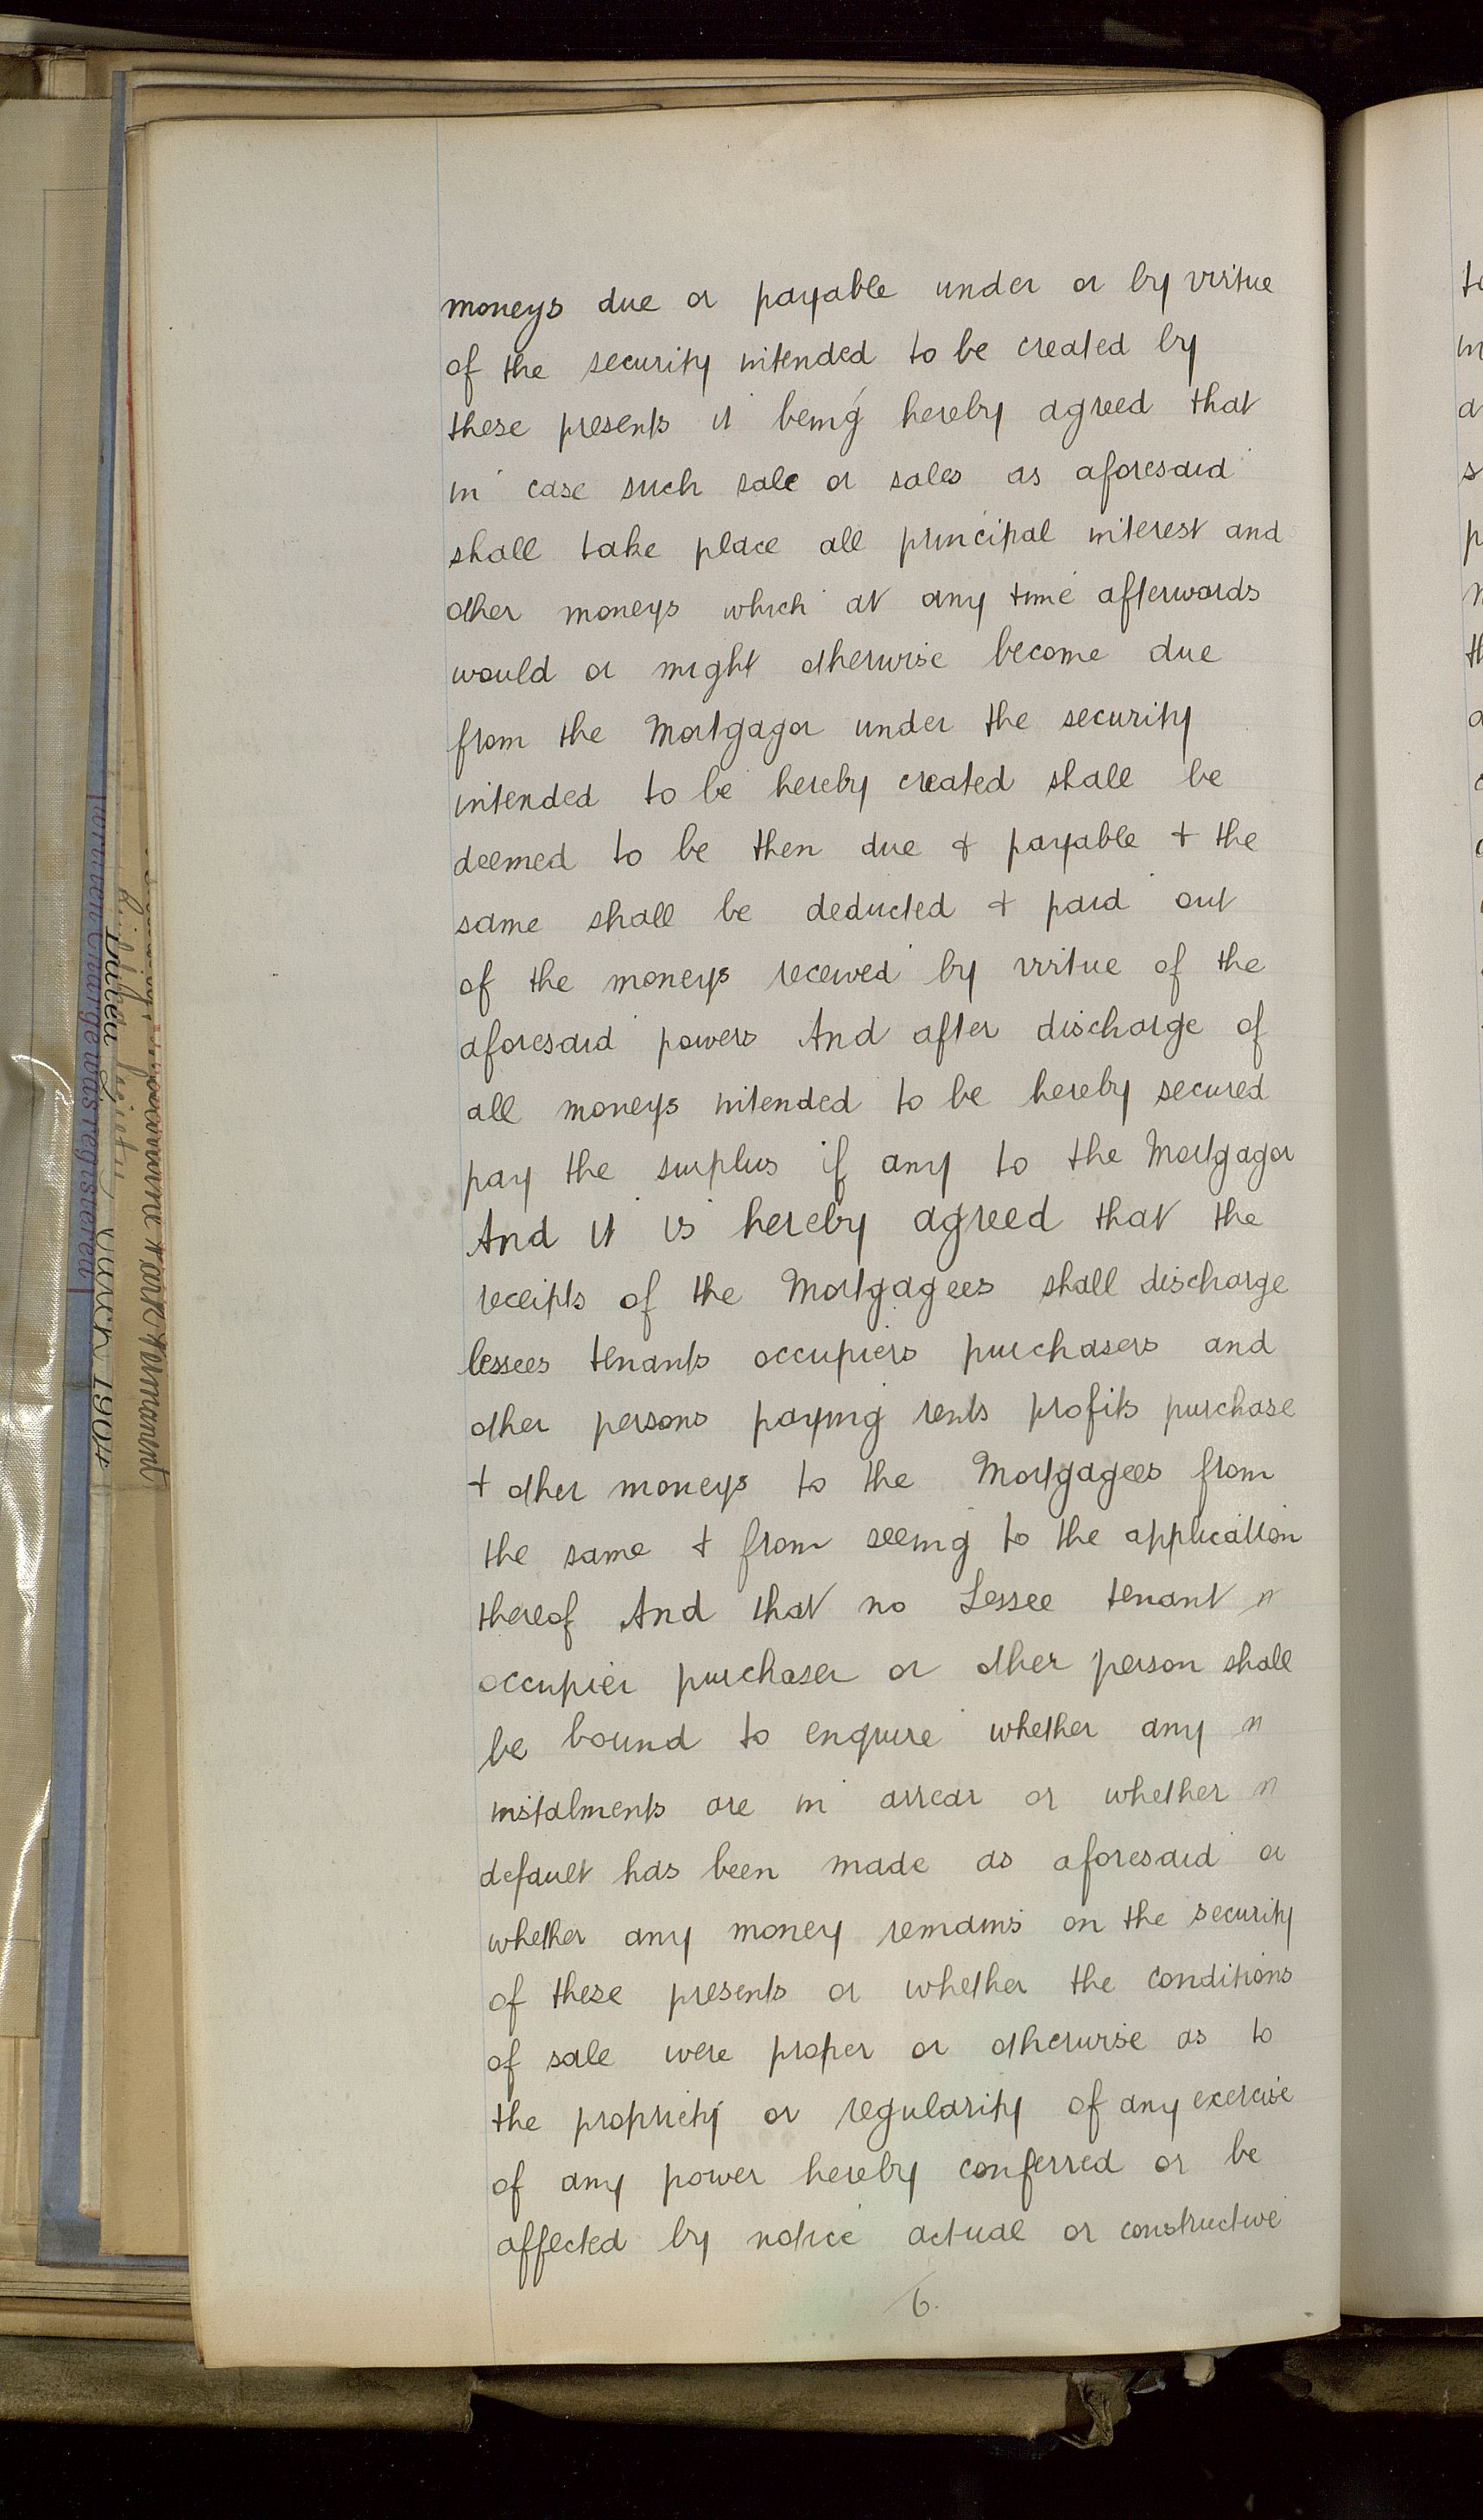 moneys due or payable under or by virtue
of the security intended to be created by
these presents it being hereby agreed that
in case such sale or sales as aforesaid
shall take place all principal interest and
other moneys which at any time afterwards
would or might otherwise become due
from the Mortgagor under the security
intended to be hereby created shall be
deemed to be then due & payable & the
same shall be deducted & paid out
of the moneys received by virtue of the
aforesaid powers And after discharge of
all moneys intended to be hereby secured
pay the surplus if any to the Mortgagor
And it is hereby agreed that the
receipts of the Mortgagees shall discharge
lessees tenants occupiers purchasers and
other persons paying rents profits purchase
& other moneys to the Mortgagees from
the same & from seeing to the application
thereof And that no Lessee tenant
occupier purchaser or other person shall
be bound to enquire whether any
instalments are in arrear or whether
default has been made as aforesaid or
whether any money remains on the security
of these presents or whether the conditions
of sale were proper or otherwise as to
the propriety or regularity of any exercise
of any power hereby conferred or be
affected by notice actual or constructive
6.
Dated
March 1904
Charge was registered
Permanent